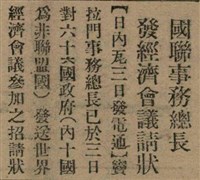 國聯事務總長
發經濟會議請狀
【日內瓦三日發電通】蜜
拉門事務總長已於三日
對六十六國政府（內十國
爲非聯盟國）發送世界
經濟會議參加之招請狀